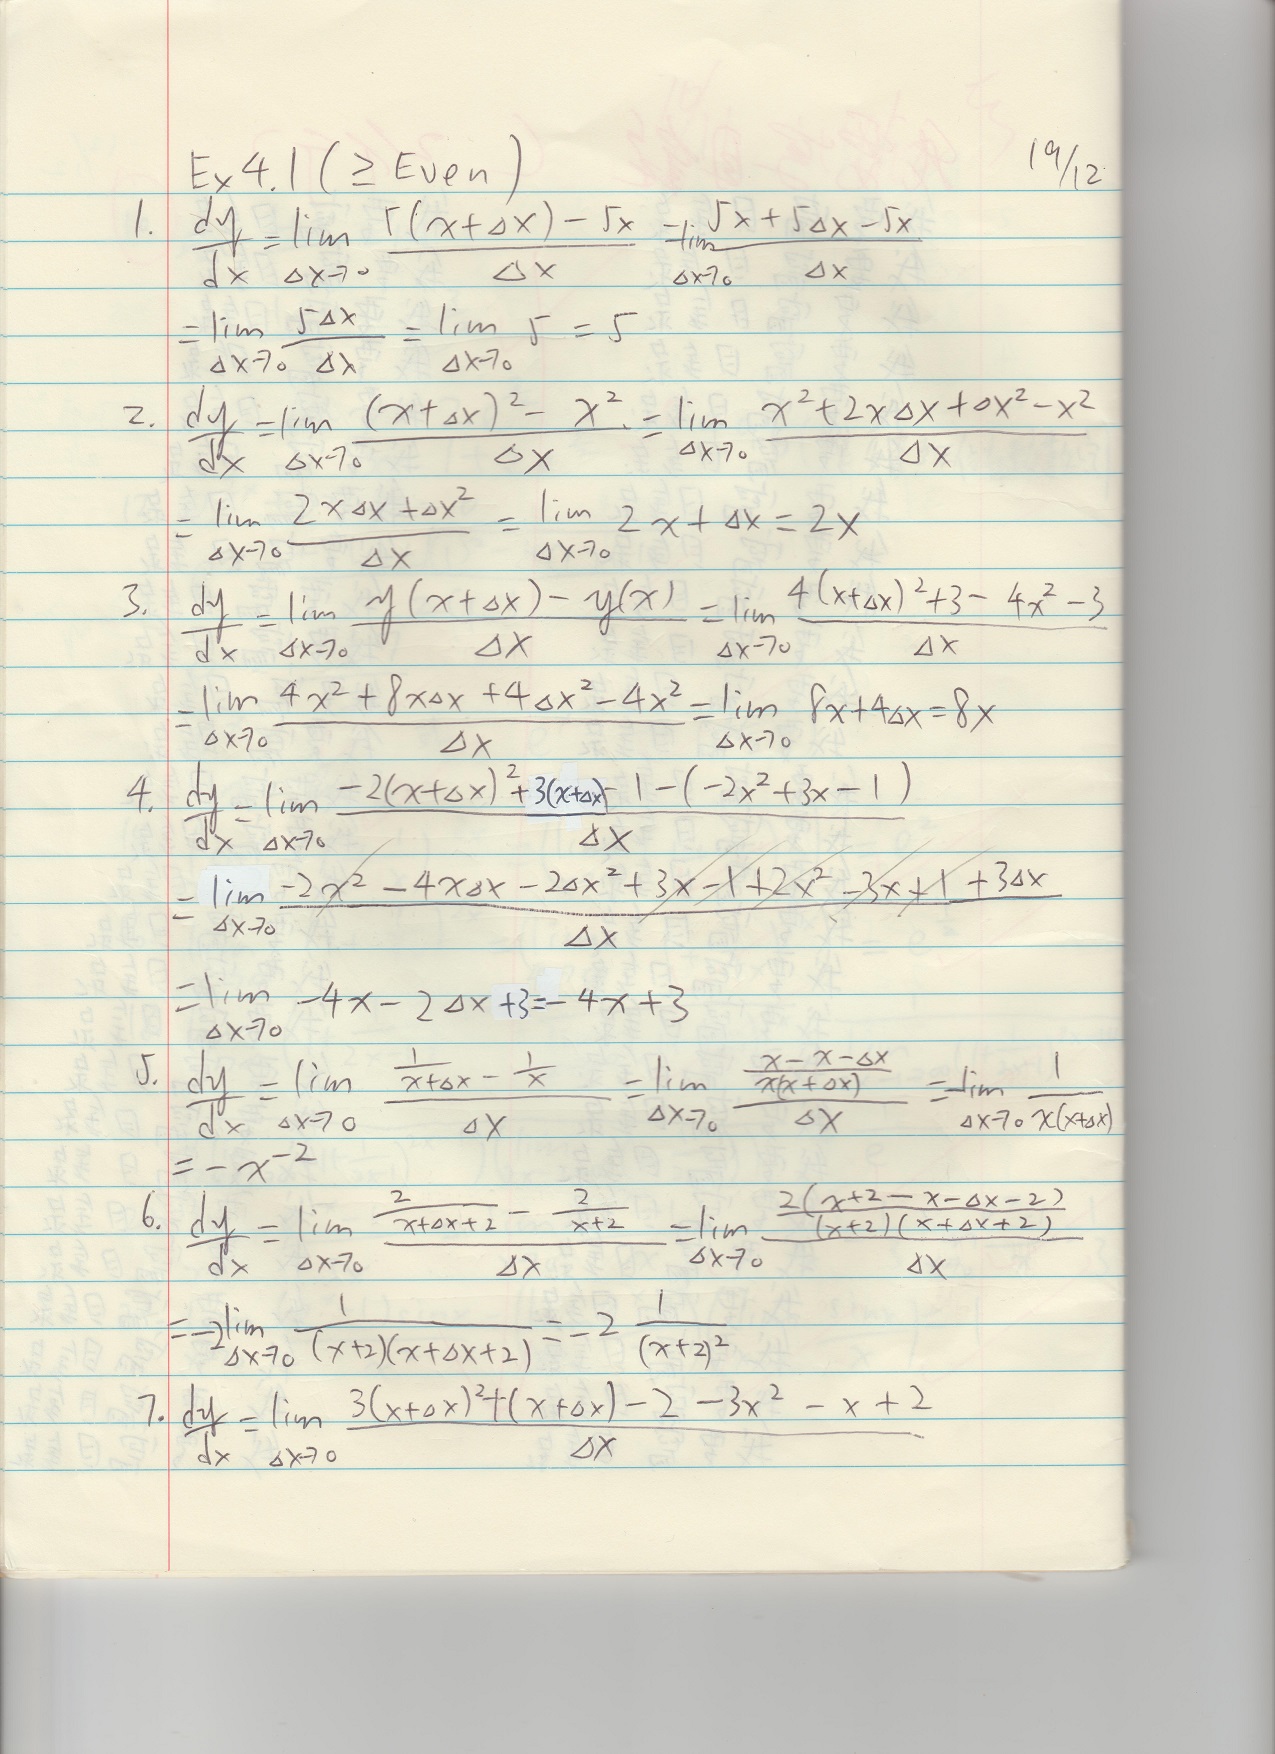 Ex 4.1 (≥ Even) 19/12
1. dy/dx = lim Δx→0 (5(x+Δx) - 5x)/Δx = lim Δx→0 (5x + 5Δx - 5x)/Δx
= lim Δx→0 5Δx/Δx = lim Δx→0 5 = 5
2. dy/dx = lim Δx→0 ((x+Δx)² - x²)/Δx = lim Δx→0 (x² + 2xΔx + Δx² - x²)/Δx
= lim Δx→0 (2xΔx + Δx²)/Δx = lim Δx→0 2x + Δx = 2x
3. dy/dx = lim Δx→0 (y(x+Δx) - y(x))/Δx = lim Δx→0 (4(x+Δx)² + 3 - 4x² - 3)/Δx
= lim Δx→0 (4x² + 8xΔx + 4Δx² - 4x²)/Δx = lim Δx→0 8x + 4Δx = 8x
4. dy/dx = lim Δx→0 (-2(x+Δx)² + 3(x+Δx) - 1 - (-2x² + 3x - 1))/Δx
= lim Δx→0 (-2x² - 4xΔx - 2Δx² + 3x - 1 + 2x² - 3x + 1 + 3Δx)/Δx
= lim Δx→0 -4x - 2Δx + 3 = -4x + 3
5. dy/dx = lim Δx→0 (1/(x+Δx) - 1/x)/Δx = lim Δx→0 ((x - x - Δx)/(x(x+Δx)))/Δx = -lim Δx→0 1/(x(x+Δx))
= -x⁻²
6. dy/dx = lim Δx→0 (2/(x+Δx+2) - 2/(x+2))/Δx = lim Δx→0 (2(x+2-x-Δx-2)/((x+2)(x+Δx+2)))/Δx
= -2 lim Δx→0 1/((x+2)(x+Δx+2)) = -2 1/(x+2)²
7. dy/dx = lim Δx→0 (3(x+Δx)² + (x+Δx) - 2 - 3x² - x + 2)/Δx